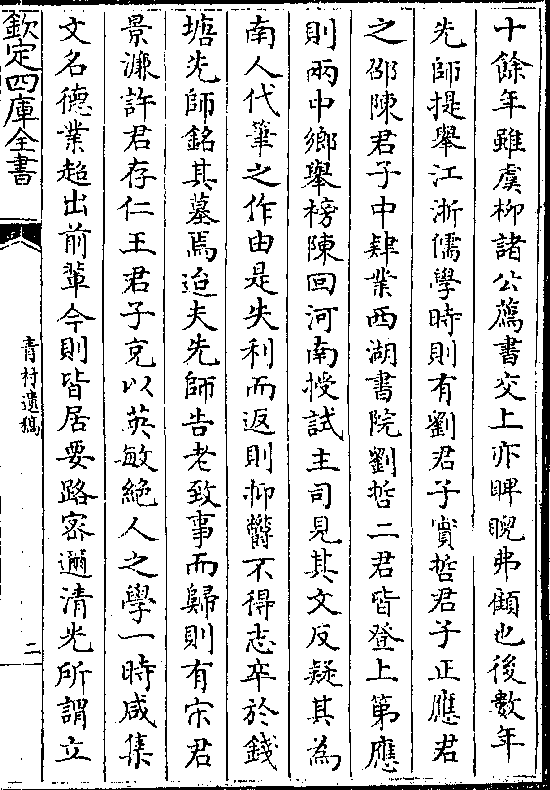 十餘年雖虞柳諸公薦書交上亦睥睨弗顧也後數年
先師提舉江浙儒學時則有劉君子實哲君子正應君
之邵陳君子中肄業西湖書院劉哲二君皆登上第應
則兩中鄉舉榜陳回河南授試主司見其文反疑其為
南人代筆之作由是失利而返則抑鬱不得志卒於錢
塘先師銘其墓焉迨夫先師告老致事而歸則有宋君
景濂許君存仁王君子充以英敏絶人之學一時咸集
文名德業超出前輩今則皆居要路密邇清光所謂立
欽定四庫全書
青村遺稿
二